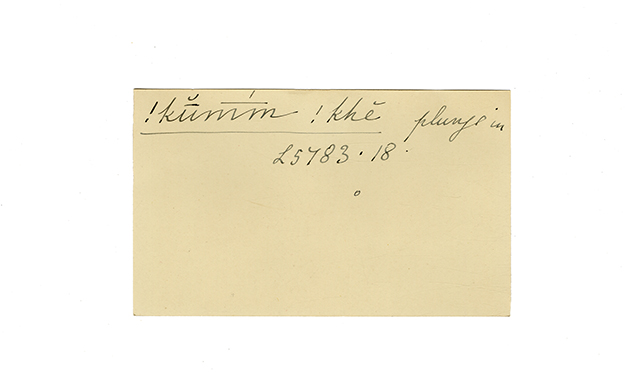 !kŭmm̄ !khĕ plunge in
L5783.18.